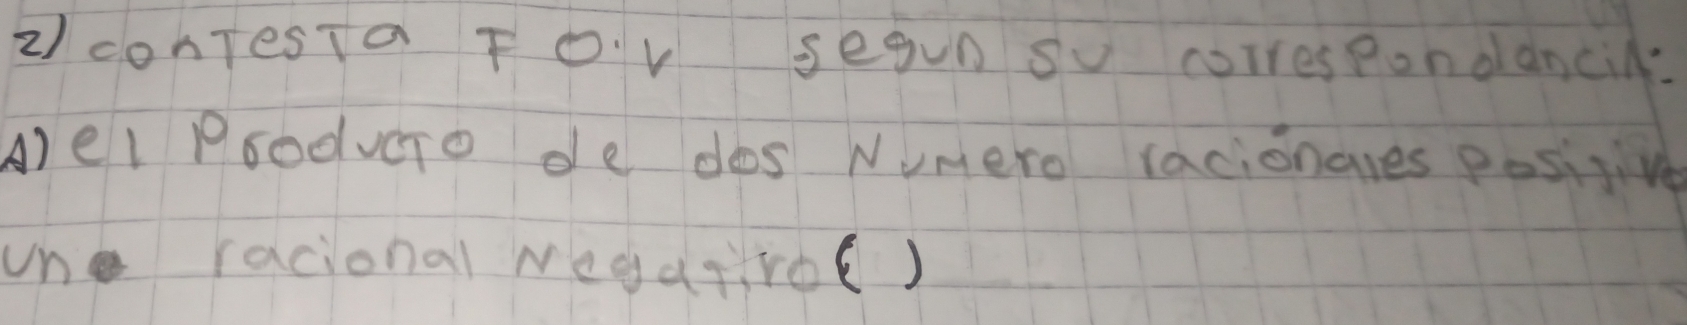 2) contesta F o. v segun su correspondencia:
A) el Producto de dos Numero racionales positivo
un racional Negativo ( )